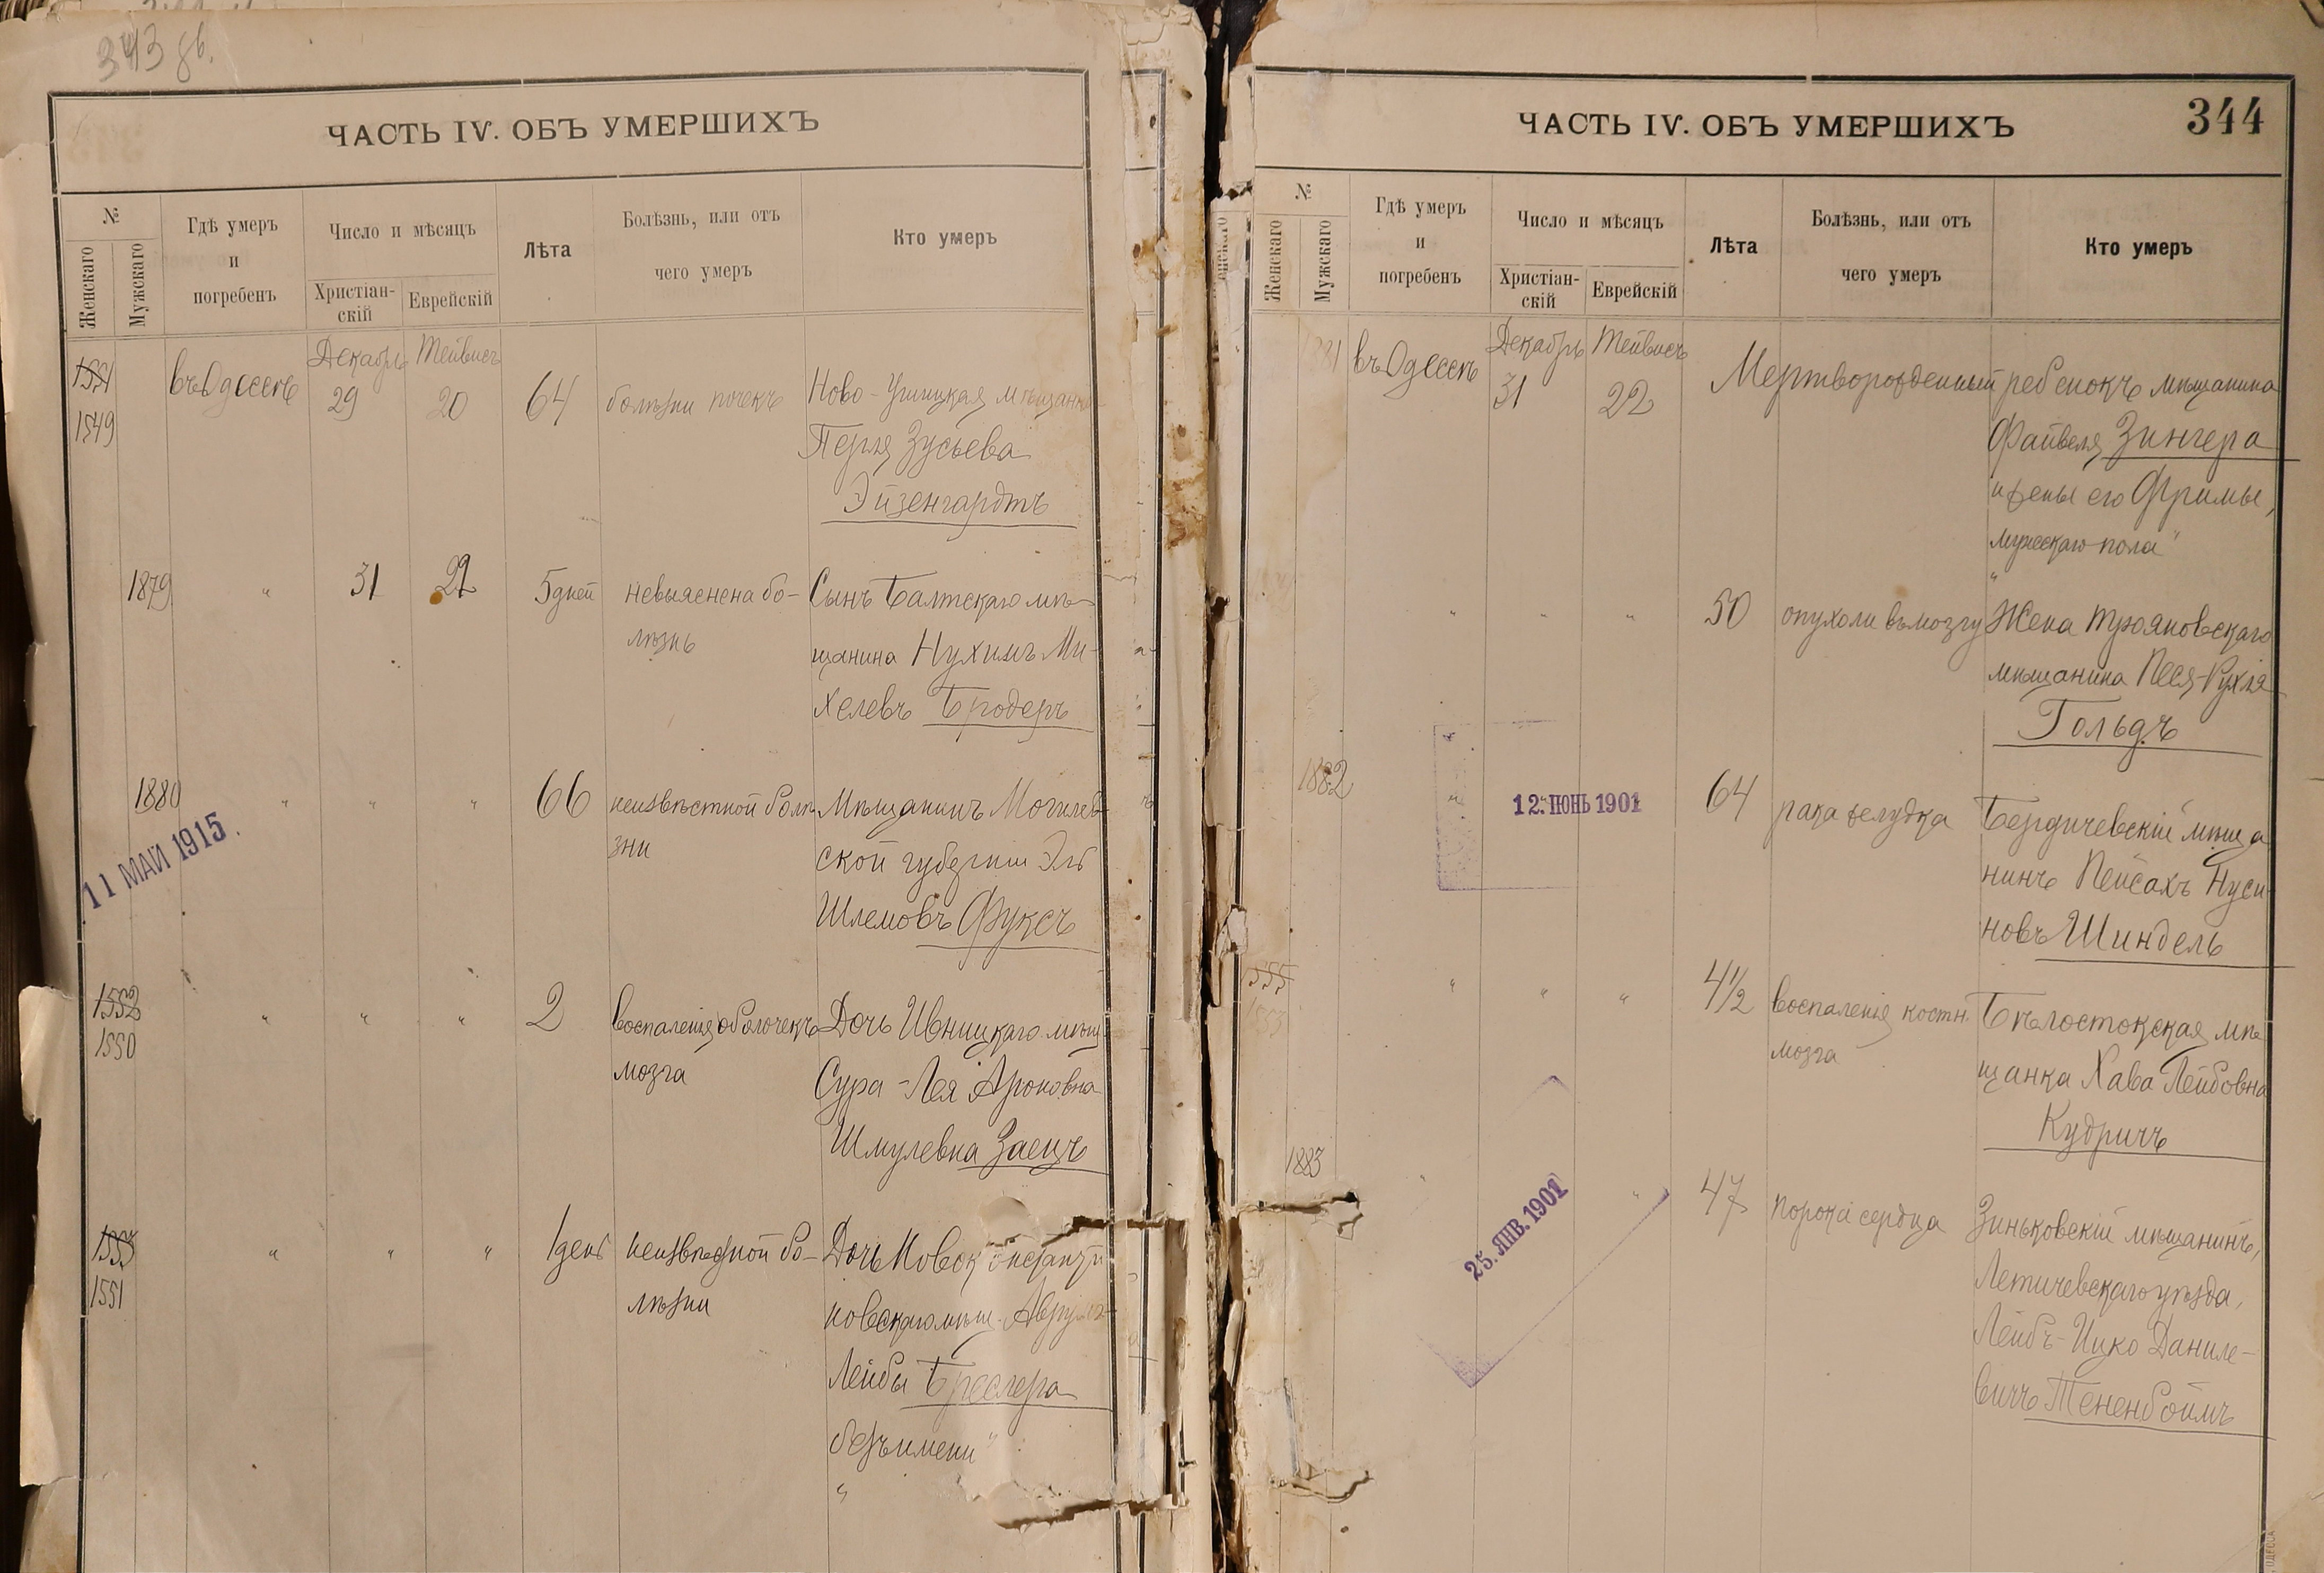 343 об.
ЧАСТЬ IV. ОБЪ УМЕРШИХЪ
№
Женскаго
Мужскаго
Гдѣ умеръ
и
погребенъ
Число и мѣсяцъ
Христіан-
скій
Еврейскій
Лѣта
Болѣзнь, или отъ
чего умеръ
Кто умеръ
1551
1549
въ Одессѣ
Декабрь
29
Тейвисъ
20
64
болѣзни почекъ
Ново-Ушицкая мѣщанка
Перля Зусьева
Эйзенгардтъ
1879
"
31
22
5 дней
невыяснена бо-
лѣзнь
Сынъ Балтскаго мѣ-
щанина Нухимъ Ми-
хелевъ Бродеръ
1880
"
"
"
66
неизвѣстной болѣ-
зни
Мѣщанинъ Могилев-
ской губерніи Эль
Шлемовъ Фуксъ
11 МАЙ 1915.
1552
1550
"
"
"
2
воспаленія оболочекъ
мозга
Дочь Ивницкаго мѣщ.
Сура-Лея Ароновна
Шмулевна Заецъ
1553
1551
"
"
"
1 день
неизвѣстной бо-
лѣзни
Дочь Новоконстанти
новскаго мѣщ.
Лейбы Бреслера
безъ имени"
"
ЧАСТЬ IV. ОБЪ УМЕРШИХЪ
344
№
Женскаго
Мужскаго
Гдѣ умеръ
и
погребенъ
Число и мѣсяцъ
Христіан-
скій
Еврейскій
Лѣта
Болѣзнь, или отъ
чего умеръ
Кто умеръ
1881
въ Одессѣ
Декабрь
31
Тейвисъ
22
Мертворожденный ребенокъ мѣщанина
Файвеля Зингера
и жены его Фримы,
мужескаго пола"
"
"
"
"
50
опухоли въ мозгу
Жена Трояновскаго
мѣщанина Песя-Рухля
Гольдъ
1882
"
12. ІЮНЬ 1901
64
рака желудка
Бердичевскій мѣща
нинъ Пейсахъ Нуси-
новъ Шиндель
1555
1553
"
"
"
4 1/2
воспаленія костн.
мозга
Бѣлостокская мѣ-
щанка Хава Лейбовна
Кудричъ
1883
"
25. ЯНВ. 1901
"
47
порока сердца
Зиньковскій мѣщанинъ,
Летичевскаго уѣзда,
Лейбъ-Ицко Даниле-
вичъ Тененбоймъ